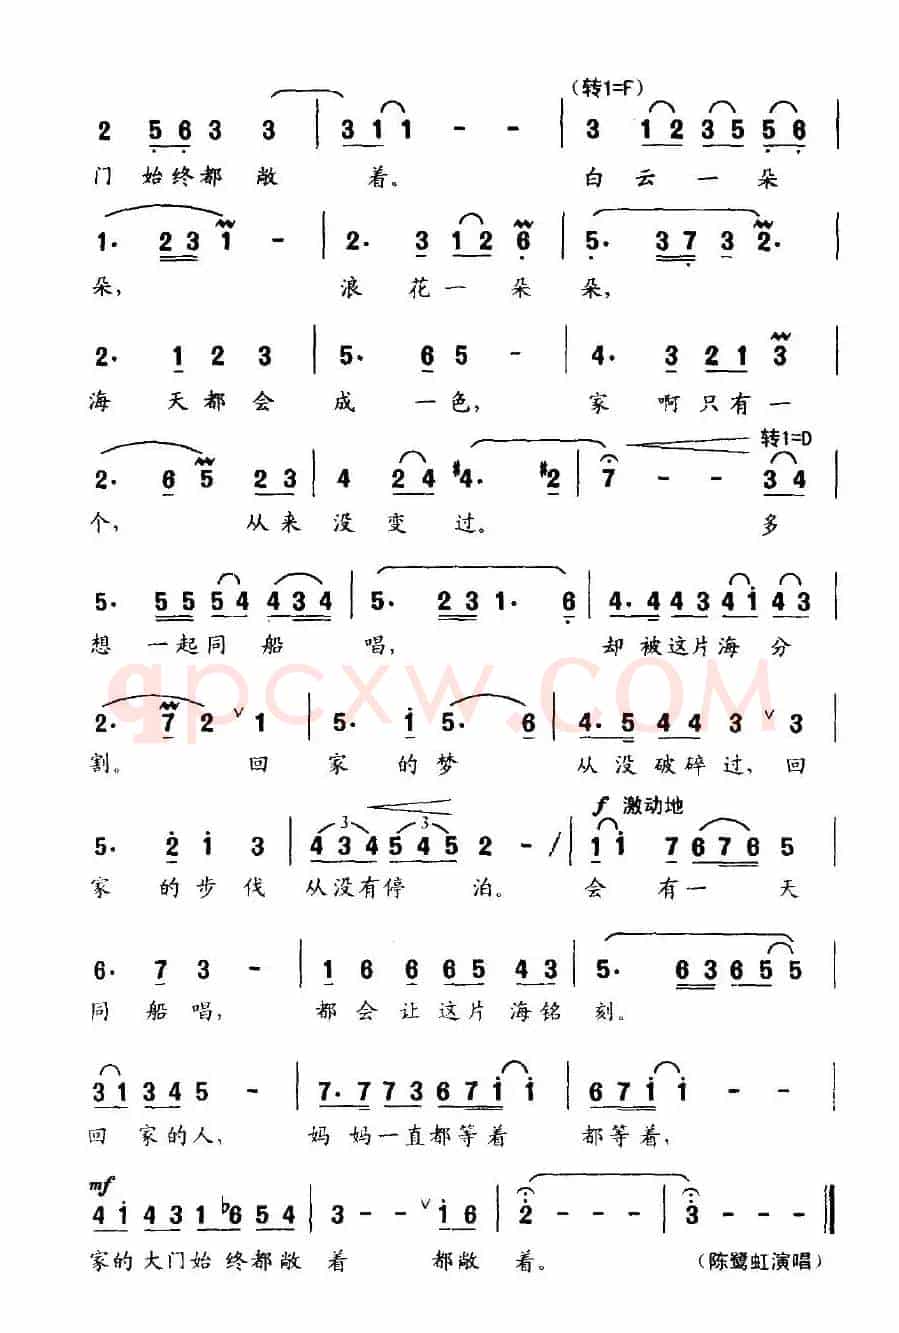 (转1=F)
2 5 6 3 3 | 3 1 1 - - | 3 1 2 3 5 5 6 |
门 始终都 敞 着。 白 云 一 朵
1· 2 3 1 - | 2· 3 1 2 6 | 5· 3 7 3 2· |
朵, 浪 花 一 朵 朵,
2· 1 2 3 | 5· 6 5 - | 4· 3 2 1 3 |
海 天 都 会 成 一 色, 家 啊 只 有 一
转1=D
2· 6 5 2 3 | 4 2 4 #4· #2 | 7 - - 3 4 |
个, 从 来 没 变 过。 多
5· 5 5 5 4 4 3 4 | 5· 2 3 1· 6 | 4· 4 4 3 4 i 4 3 |
想 一 起 同 船 唱, 却 被 这 片 海 分
qpcxw.COM
2· 7 2 ∨ 1 | 5· i 5· 6 | 4· 5 4 4 3 ∨ 3 |
割。 回 家 的 梦 从 没 破 碎 过, 回
f 激动地
3 3
5· 2 i 3 | 4 3 4 5 4 5 2 - / | 1 i 7 6 7 6 5 |
家 的 步 伐 从 没 有 停 泊。 会 有 一 天
6· 7 3 - | 1 6 6 6 5 4 3 | 5· 6 3 6 5 5 |
同 船 唱, 都 会 让 这 片 海 铭 刻。
3 1 3 4 5 - | 7· 7 7 3 6 7 i i | 6 7 i i - - |
回 家 的 人, 妈 妈 一 直 都 等 着 都 等 着,
mf
4 i 4 3 1 ♭6 5 4 | 3 - - ∨ i 6 | 2 - - - | 3 - - - ‖
家 的 大 门 始 终 都 敞 着 都 敞 着。 (陈鹭虹演唱)